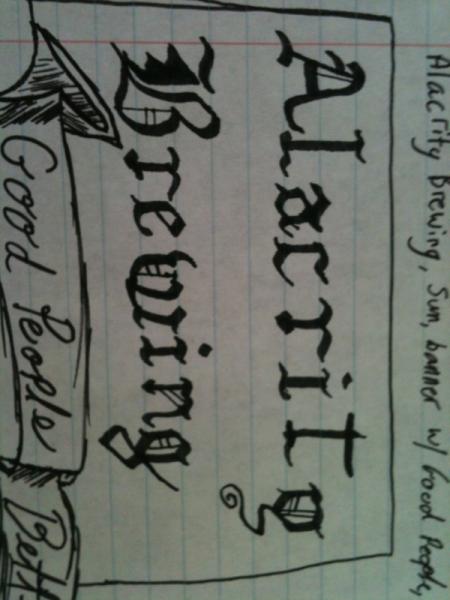 Alacrity Brewing, Sun, banner w/ Good People,
Alacrity
Brewing
Good People